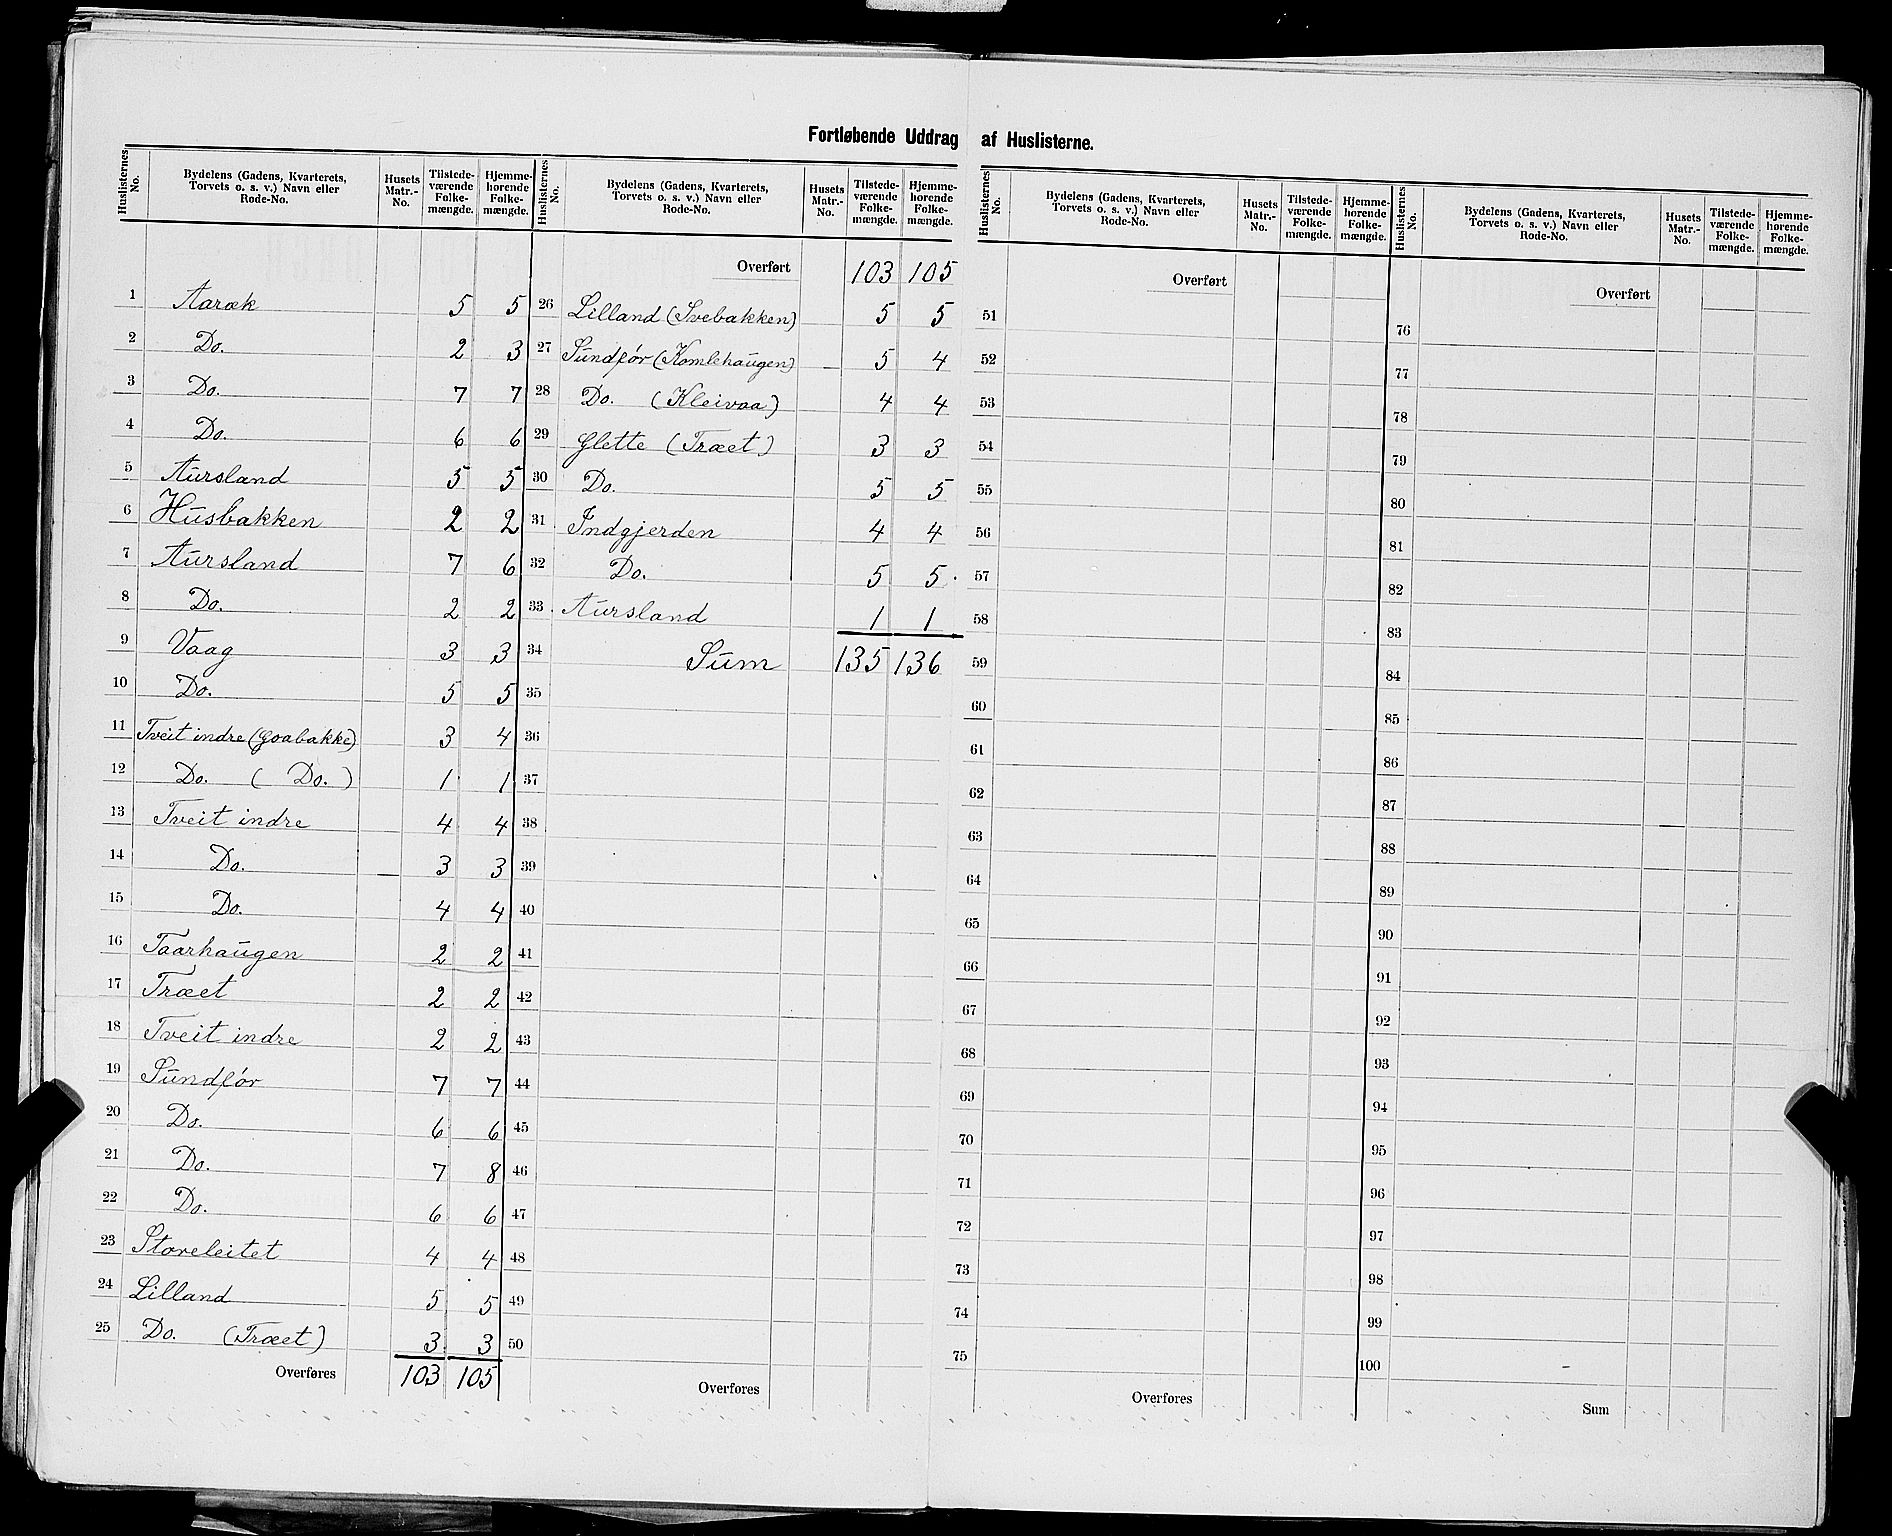 Fortløbende Uddrag af Huslisterne.
Huslisternes No. | Bydelens (Gadens, Kvarterets, Torvets o. s. v.) Navn eller Rode-No. | Husets Matr.-No. | Tilstedeværende Folkemængde. | Hjemmehørende Folkemængde.
1 Aaræk 5 5
2 Do. 2 3
3 Do. 7 7
4 Do. 6 6
5 Aursland 5 5
6 Husbakken 2 2
7 Aursland 7 6
8 Do. 2 2
9 Vaag 3 3
10 Do. 5 5
11 Tveit indre (Goabakke) 3 4
12 Do. ( Do. ) 1 1
13 Tveit indre 4 4
14 Do. 3 3
15 Do. 4 4
16 Taarhaugen 2 2
17 Træet 2 2
18 Tveit indre 2 2
19 Sundför 7 7
20 Do. 6 6
21 Do. 7 8
22 Do. 6 6
23 Storeleitet 4 4
24 Lilland 5 5
25 Do. (Træet) 3 3
Overføres 103 105
Huslisternes No. | Bydelens (Gadens, Kvarterets, Torvets o. s. v.) Navn eller Rode-No. | Husets Matr.-No. | Tilstedeværende Folkemængde. | Hjemmehørende Folkemængde.
Overført 103 105
26 Lilland (Svebakken) 5 5
27 Sundför (Komlehaugen) 5 4
28 Do. (Kleivaa) 4 4
29 Glette (Træet) 3 3
30 Do. 5 5
31 Indgjerden 4 4
32 Do. 5 5
33 Aursland 1 1
34 Sum 135 136
35
36
37
38
39
40
41
42
43
44
45
46
47
48
49
50
Overføres
Huslisternes No. | Bydelens (Gadens, Kvarterets, Torvets o. s. v.) Navn eller Rode-No. | Husets Matr.-No. | Tilstedeværende Folkemængde. | Hjemmehørende Folkemængde.
Overført
51
52
53
54
55
56
57
58
59
60
61
62
63
64
65
66
67
68
69
70
71
72
73
74
75
Overføres
Huslisternes No. | Bydelens (Gadens, Kvarterets, Torvets o. s. v.) Navn eller Rode-No. | Husets Matr.-No. | Tilstedeværende Folkemængde. | Hjemmehørende Folkemængde.
Overført
76
77
78
79
80
81
82
83
84
85
86
87
88
89
90
91
92
93
94
95
96
97
98
99
100
Sum